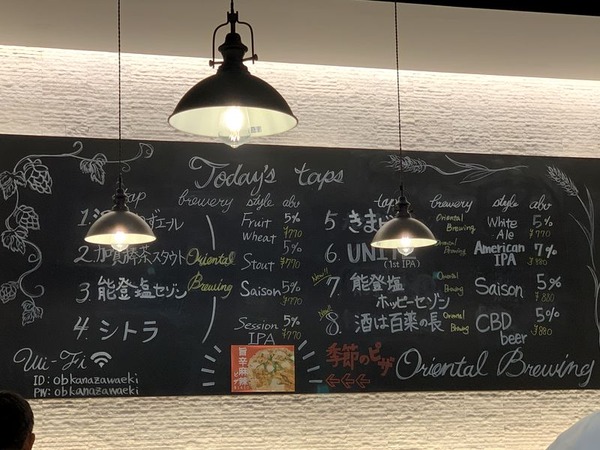 Today's taps
tap brewery style abv
1. ずエール Fruit Wheat 5% ¥770
2. 加賀棒茶スタウト Oriental Stout 5% ¥770
3. 能登塩セゾン Brewing Saison 5% ¥770
4. シトラ Session IPA 5% ¥770
tap brewery style abv
5. きま Oriental Brewing White Ale 5% ¥770
6. UNITE (1st IPA) American IPA 7% ¥880
New!! 7. 能登塩ホッピーセゾン Oriental Brewing Saison 5% ¥880
New 8. 酒は百薬の長 Oriental Brewing CBD beer 5% ¥880
Wi-Fi
ID: obkanazawaeki
PW: obkanazawaeki
旨辛麻辣
季節のピザ
Oriental Brewing